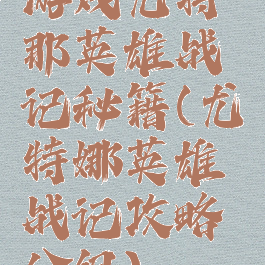 游戏尤特
那英雄战
记秘籍(尤
特娜英雄
战记攻略